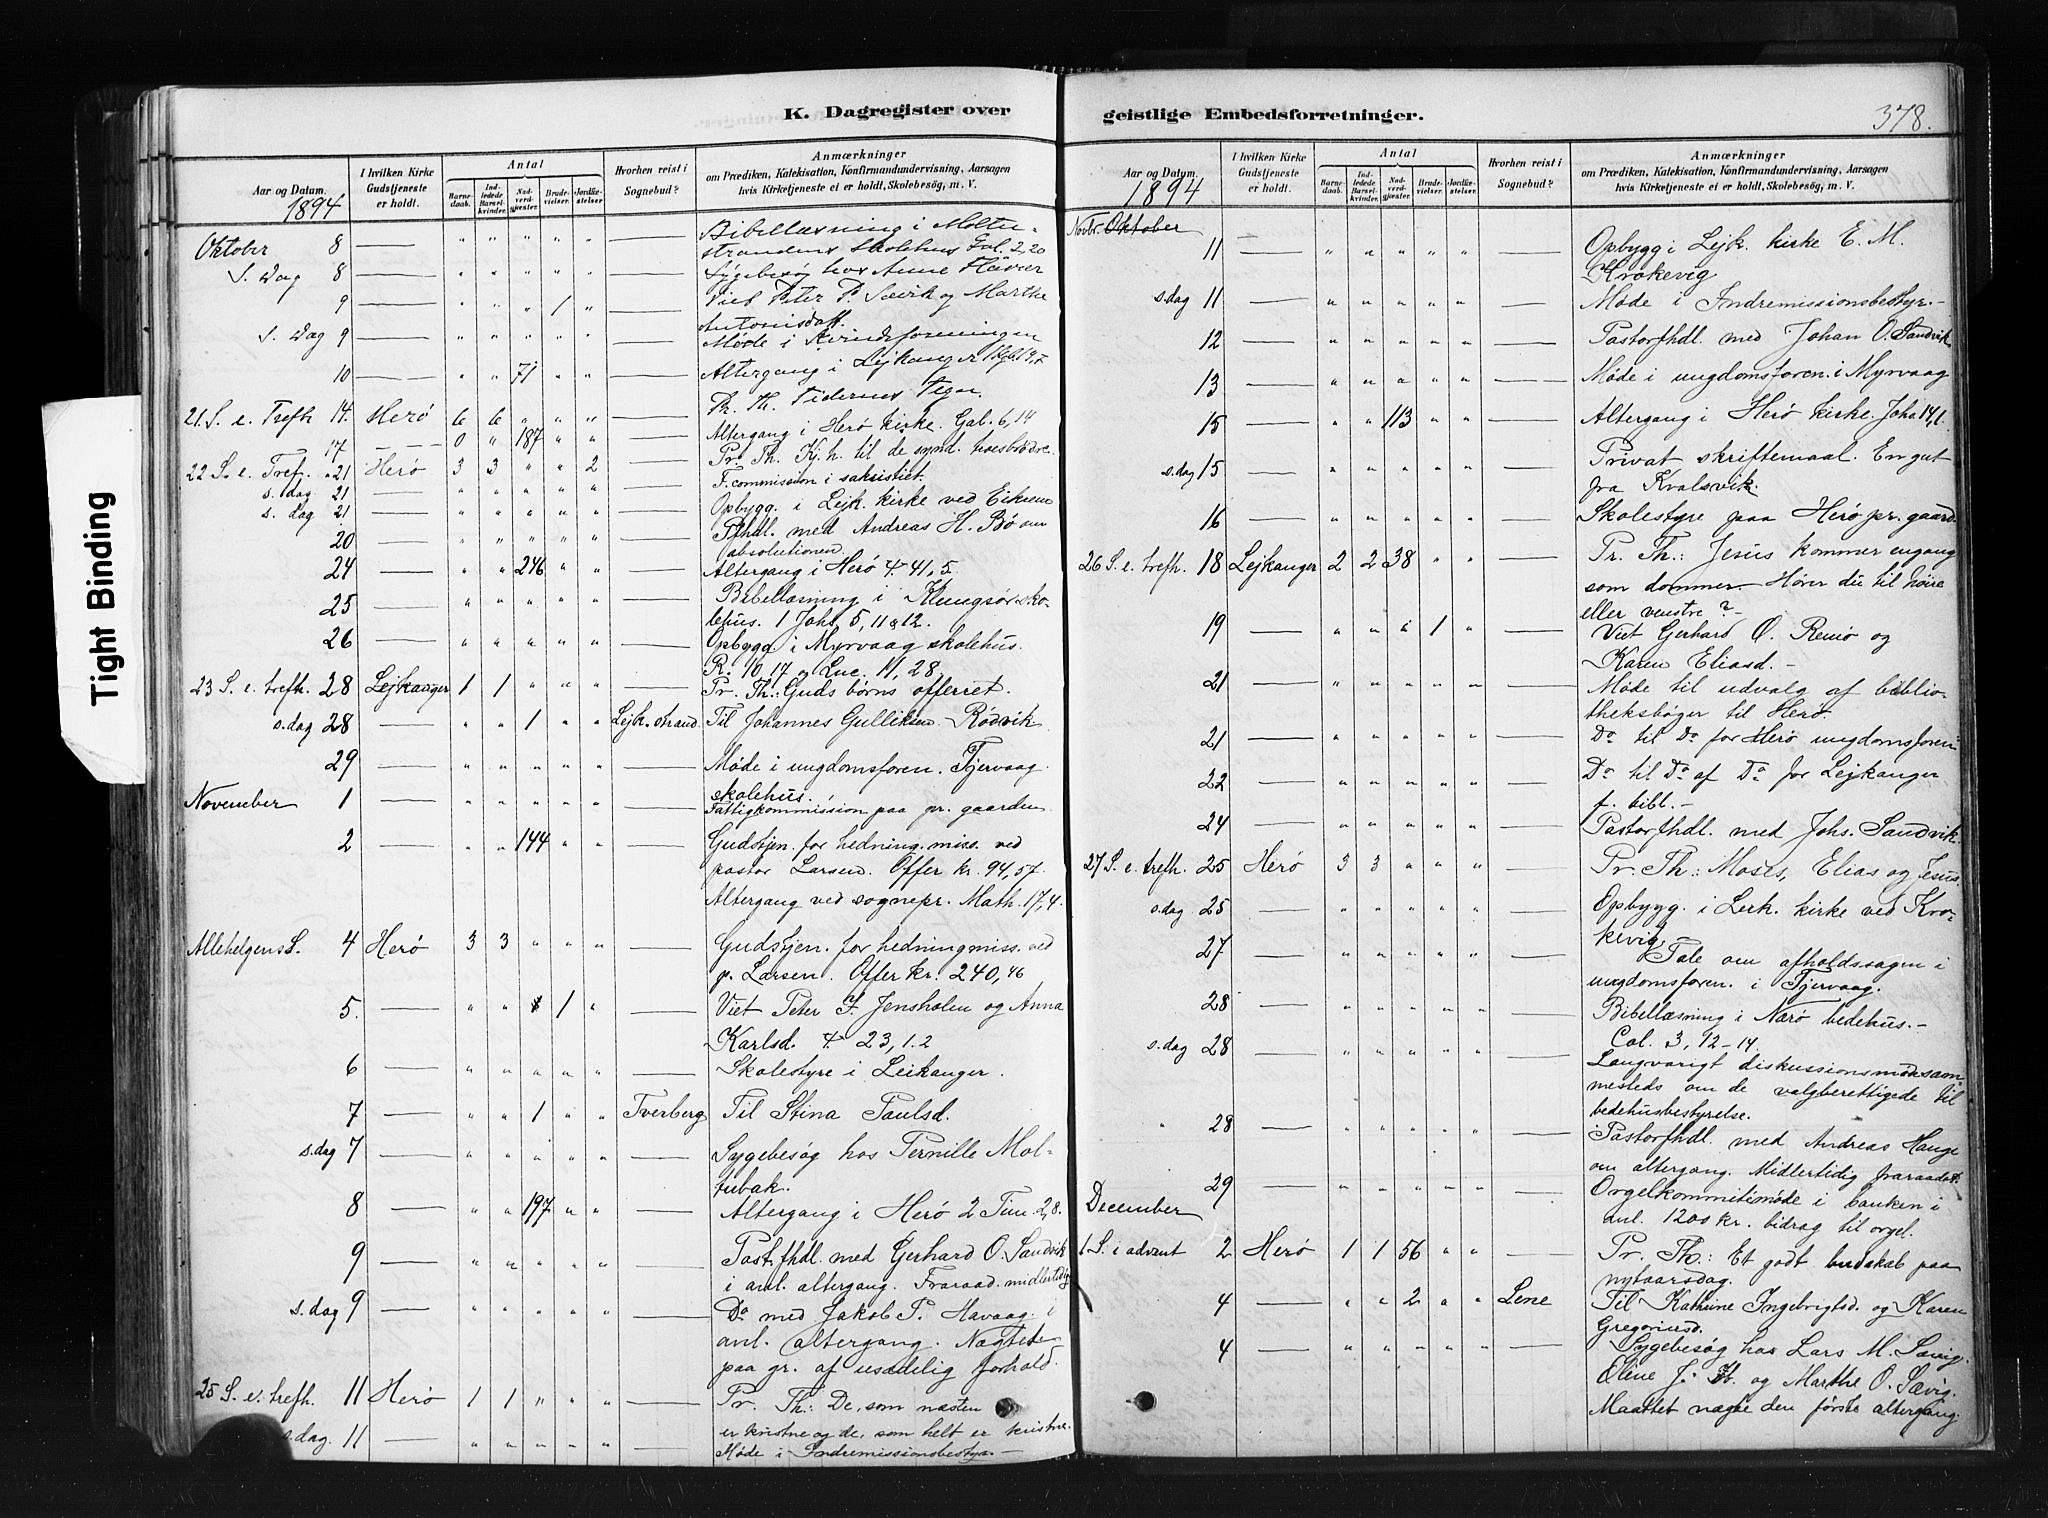 Tight Binding
K. Dagregister over geistlige Embedsforretninger.
378.
Aar og Datum. 1894
I hvilken Kirke Gudstjeneste er holdt.
Antal
Barnedaab.
Indledede Barselkvinder.
Nadverdgjester.
Brudevielser.
Jordfæstelser.
Hvorhen reist i Sognebud?
Anmærkninger
om Prædiken, Katekisation, Konfirmandundervisning, Aarsagen
hvis Kirketjeneste ei er holdt, Skolebesøg, m. V.
Oktober 8 — " " " " " — Bibellæsning i Moltu-
strandens skolehus Gal. 2,20
S. Dag 8 — " " " " " — Sygebesøg hos Anne
9 — " " " 1 " — Viet Peter P. Sævik og Marthe
Antonisdatt.
S. Dag 9 — " " " " " — Møde i Kvindeforeningen
10 — " " 71 " " — Altergang i Lejkanger
21. S. e. Trefh 14. Herø 6 6 " " " — Pr. Th. Tidernes Tegn
17 — 0 " 187 " " — Altergang i Herø kirke. Gal. 6,14
22 S. e. Tref. 21 Herø 3 3 " " 2 — Pr. Th. Kj. h. til de synd. troesbrødre
s. dag 21 — " " " " " — F. commission i sakristiet.
s. dag 21 — " " " " " — Opbygg. i Lejk. kirke ved Eiksene
20 — " " " " " — Pfhdl. med Andreas H. Bø om
absolutionen.
24 — " " 246 " " — Altergang i Herø 4. 41, 5.
25 — " " " " " — Bibellæsning i Klungsør sko-
lehus. 1 Joh. 5, 11 & 12.
26 — " " " " " — Opbygg i Myrvaag skolehus.
R. 10.17 og Luc. 11, 28.
23 S. e. trefh. 28 Lejkanger 1 1 " " " — Pr. Th.: Guds børns offerret.
s. dag 28 — " " 1 " " Lejk. strand. Til Johannes Gulliksen Rødvik
29 — " " " " " — Møde i ungdomsforen. Tjervaag
skolehus.
November 1 — " " " " " — Fattigkommission paa pr. gaarden
2 — " " 144 " " — Gudstjen. for hedning. miss. ved
pastor Larsen. Offer kr. 94,57.
Altergang ved sognepr. Math. 17,4.
Allehelgens S. 4 Herø 3 3 " " " — Gudstjen. for hedningmiss. ved
p. Larsen. Offer kr. 240,46
5. — " " 1 " — Viet Peter J. Jensholm og Anna
Karlsd. 4 23, 1.2
6 — " " " " " — Skolestyre i Leikanger.
7 — " " 1 " " Tverberg Til Stina Paulsd.
s. dag 7 — " " " " " — Sygebesøg hos Pernille Mol-
tubak.
8 — " " 197 " " — Altergang i Herø 2 Tim. 2,8.
9 — " " " " " — Past. fhdl. med Gerhard O. Sandvik
i anl. altergang. Fraraad. midlertidig
s. dag 9 — " " " " " — Do med Jakob P. Havaag i
anl. altergang. Nægtet
paa gr. af usædelig forhold.
25 S. e. trefh. 11 Herø 1 1 " " " — Pr. Th.: De, som næsten
er kristne og de, som helt er kristne.
s. dag. 11 — " " " " " — Møde i Indremissionsbestyr. —
Aar og Datum. 1894
I hvilken Kirke Gudstjeneste er holdt.
Antal
Barnedaab.
Indledede Barselkvinder.
Nadverdgjester.
Brudevielser.
Jordfæstelser.
Hvorhen reist i Sognebud?
Anmærkninger
om Prædiken, Katekisation, Konfirmandundervisning, Aarsagen
hvis Kirketjeneste ei er holdt, Skolebesøg, m. V.
Novbr. Oktober
11 — " " " " " — Opbygg i Lejk. kirke E. M.
Krokevig
s. dag 11 — " " " " " — Møde i Indremissionsbestyr. —
12 — " " " " " — Pastorfhdl. med Johan O. Sandvik
13 — " " " " " — Møde i ungdomsforen. i Myrvaag
15 — " " 113 " " — Altergang i Herø kirke. Joh. 14,1.
s. dag 15 — " " " " " — Privat skriftemaal. En gut
fra Kvalsvik.
16 — " " " " " — Skolestyre paa Herø pr. gaard.
26 S. e. trefh. 18 Lejkanger 2 2 38 " " — Pr. Th.: Jesus kommer engang
som dommer. Hører du til høire
eller venstre? —
19 — " " " 1 " — Viet Gerhard O. Remø og
Karen Eliasd. —
21 — " " " " " — Møde til udvalg af biblio-
theksbøger til Herø.
21 — " " " " " — Do til Do for Herø ungdomsforen.
22 — " " " " " — Do til Do af Do for Lejkanger
f. bibl. —
24 — " " " " " — Pastorfhdl. med Johs. Sandvik.
27 S. e. trefh. 25 Herø 3 3 " " " — Pr. Th.: Moses, Elias og Jesus.
s. dag 25 — " " " " " — Opbygg. i Leik. kirke ved Kro-
kevig. —
27 — " " " " " — Tale om afholdssagen i
ungdomsforen. i Tjervaag.
28 — " " " " " — Bibellæsning i Nærø bedehus. —
Col. 3, 12–17.
s. dag 28 — " " " " " — Langvarigt diskussionsmøde sam-
mesteds om de valgberettigede til
bedehusbestyrelse.
" 28 — " " " " " — Pastorfhdl. med Andreas Hauge
om altergang. Midlertidig fraraadet.
29 — " " " " " — Orgelkommitemøde i banken i
anl. 1200 kr. bidrag til orgel.
December
1 S. i advent 2 Herø 1 1 56 " " — Pr. Th.: Et godt budskab paa
nytaarsdag.
4 — " " 2 " " Lene Til Kathrine Ingebrigtsd. og Karen
Gregoriusd.
4 — " " " " " — Sygebesøg hos Lars M. Sævig.
Oline J. og Marthe O. Sævig.
Maattet nægte den første altergang.